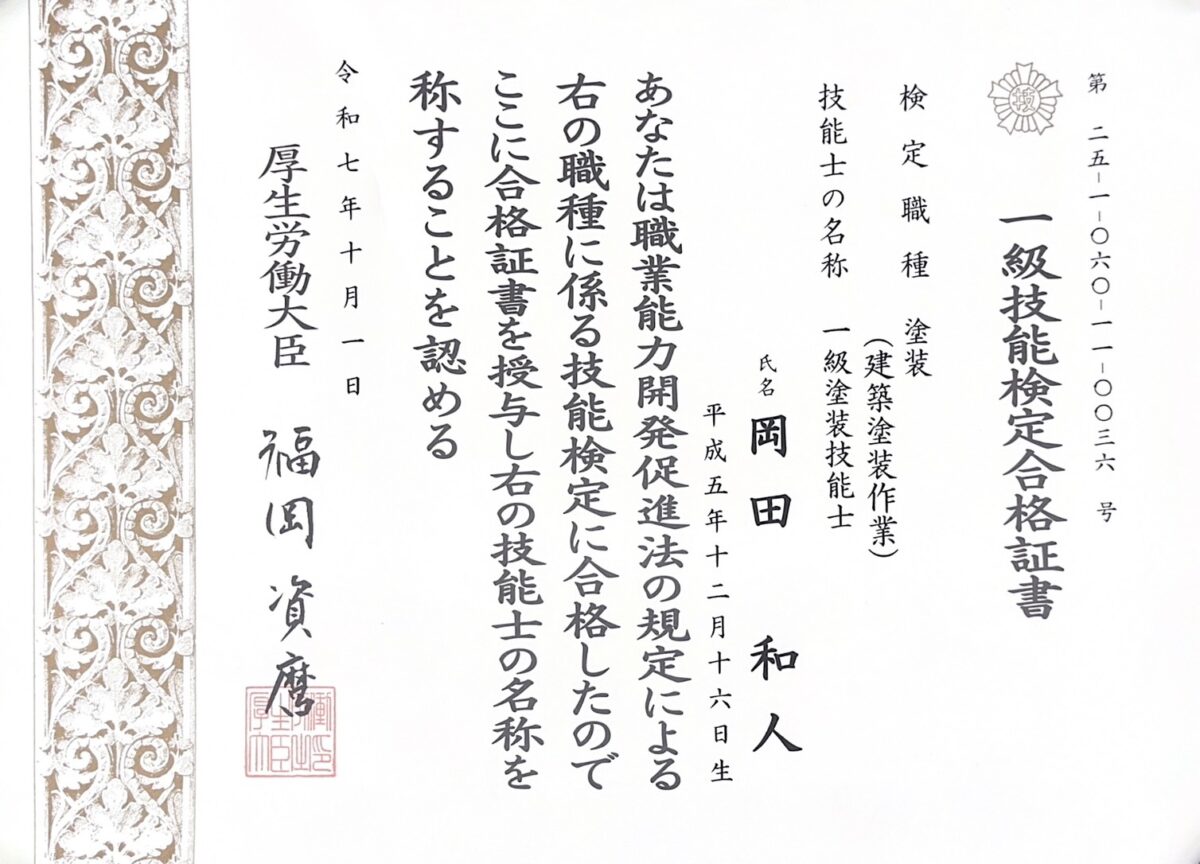 第 二五-一-〇六〇-一一-〇〇三六 号
技
一級技能検定合格証書
検定職種 塗装
(建築塗装作業)
技能士の名称 一級塗装技能士
氏名 岡田 和人
平成五年十二月十六日生
あなたは職業能力開発促進法の規定による
右の職種に係る技能検定に合格したので
ここに合格証書を授与し右の技能士の名称を
称することを認める
令和七年十月一日
厚生労働大臣 福岡 資麿